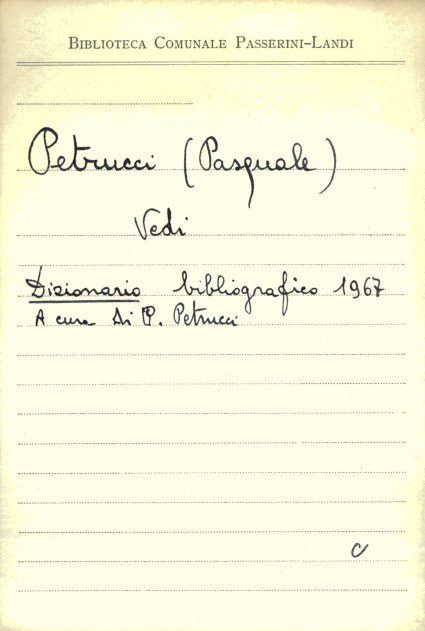 BIBLIOTECA COMUNALE PASSERINI-LANDI
Petrucci (Pasquale)
Vedi
Dizionario bibliografico 1967
A cura di P. Petrucci
c